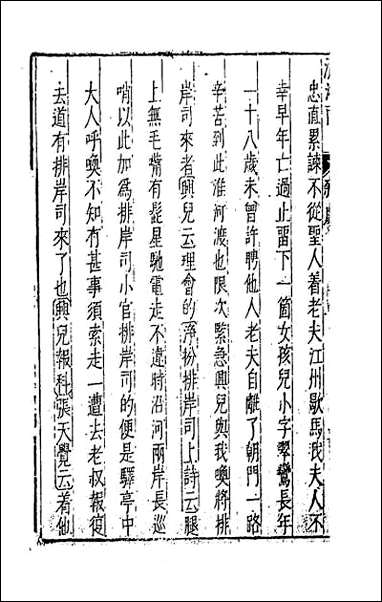 忠直累諫不從聖人着老夫江州歇馬我夫人不
幸早年亡過止畱下一箇女孩兒小字翠鸞長年
一十八歲未曾許聘他人老夫自離了朝門一路
辛苦到此淮河渡也限次緊急興兒與我喚將排
岸司來者興兒云理會的淨扮排岸司上詩云腿
上無毛嘴有髭星馳電走不違時沿河兩岸長巡
哨以此加爲排岸司小官排岸司的便是驛亭中
大人呼喚不知有甚事須索走一遭去老叔報復
去道有排岸司來了也興兒報科張天覺云着他